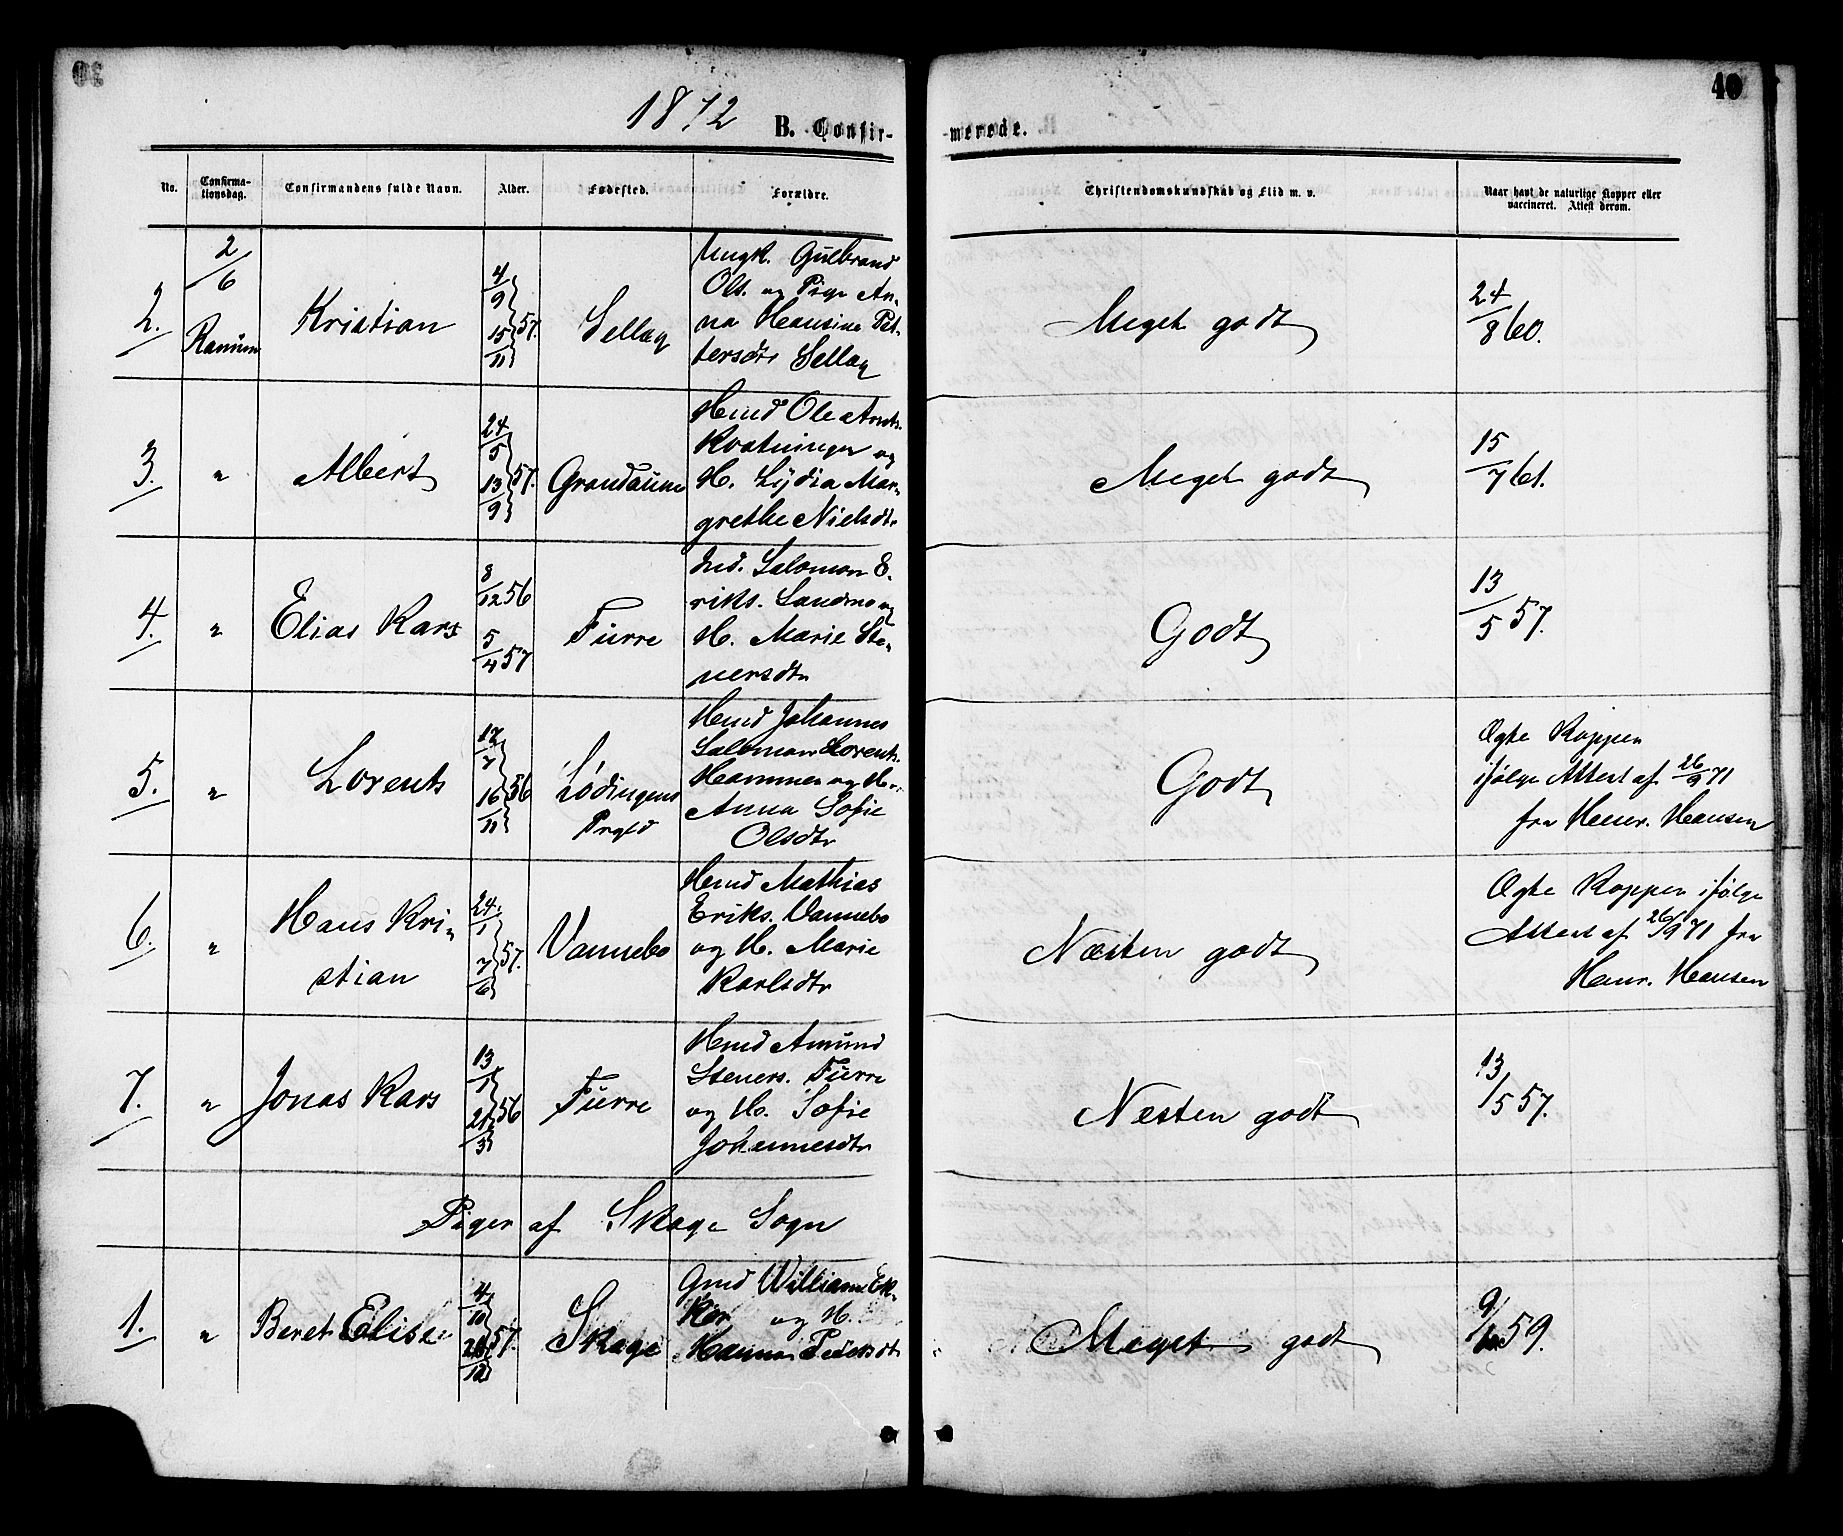 30
40
1872
B. Confir-
-merede.
No.
Confirma-
tionsdag.
Confirmandens fulde Navn.
Alder.
Fødested.
Forældre.
Christendomskundskab og Flid m. v.
Naar havt de naturlige Kopper eller
vaccineret. Attest derom.
2.
2/6
Ranum
Kristian
4/9
15/11
57.
Sellæg
Ungk. Gulbrand
Ols. og Pige An-
na Hansine Pet-
tersdtr Sellæg
Meget godt
24/8 60.
3.
"
Albert
24/5
13/9
57.
Grandaune
Hmd Ole Arnts.
Kvatninger og
H. Lydia Mar-
grethe Nielsdtr
Meget godt
15/7 61.
4.
"
Elias Kars
8/12 56
5/4 57
Furre
Ind. Salomon E-
riks. Sandmo og
H. Marie Ste-
nersdtr
Godt
13/5 57.
5.
"
Lorents
12/7
16/11
56
Lødingens
Prgld
Hmd Johannes
Salomon Lorents.
Hammer og H.
Anna Sofie
Olsdtr
Godt
Ægte Kopper
ifølge Attest af 26/9 71
fra Henr. Hansen
6.
"
Hans Kri-
stian
24/1
7/6
57.
Vannebo
Hmd Mathias
Eriks. Vannebo
og H. Marie
Karlsdtr
Næsten godt
Ægte Kopper ifølge
Attest af 26/9 71 fra
Henr. Hansen
7.
"
Jonas Kars
13/1
21/3
56
Furre
Hmd Amund
Steners. Furre
og H. Sofie
Johannesdtr
Næsten godt
13/5 57.
Piger af Skage Sogn
1.
"
Beret Elise
4/10
26/12
57.
Skage
Gmd William Ek-
ker og H.
Hanna Pedersdt
Meget godt
9/10 59.